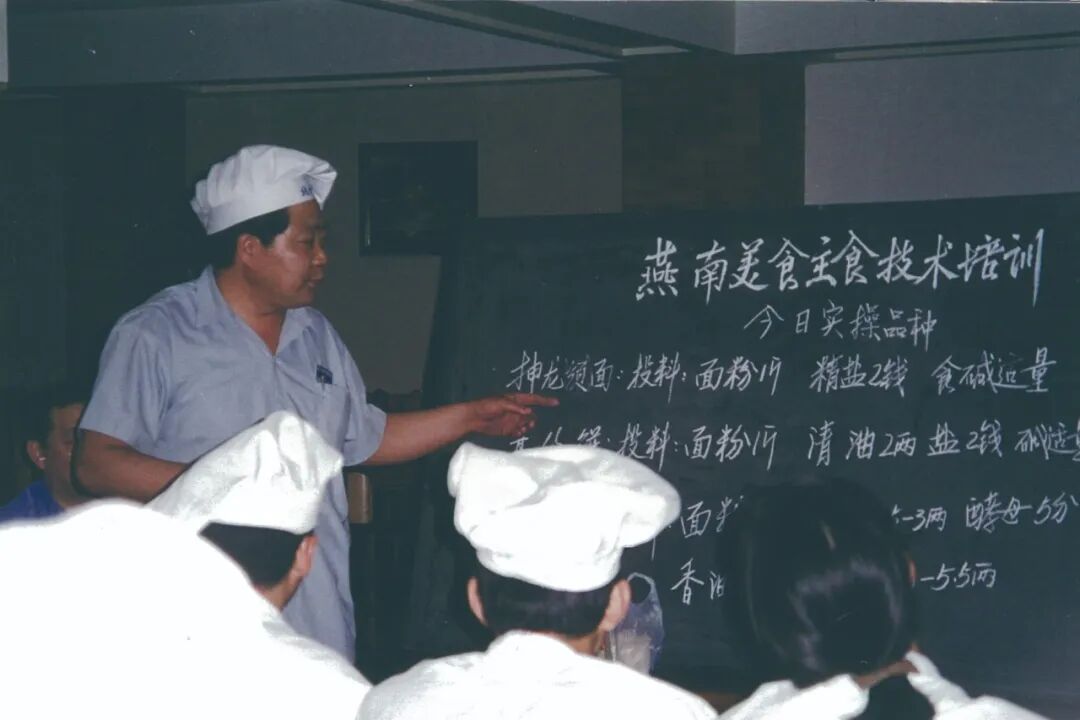 燕南美食主食技术培训
今日实操品种
抻龙须面:投料:面粉1斤 精盐2钱 食碱适量
饼:投料:面粉1斤 清油2两 盐2钱 碱适量
面粉 5-3两 酵母5分
香油 -5.5两